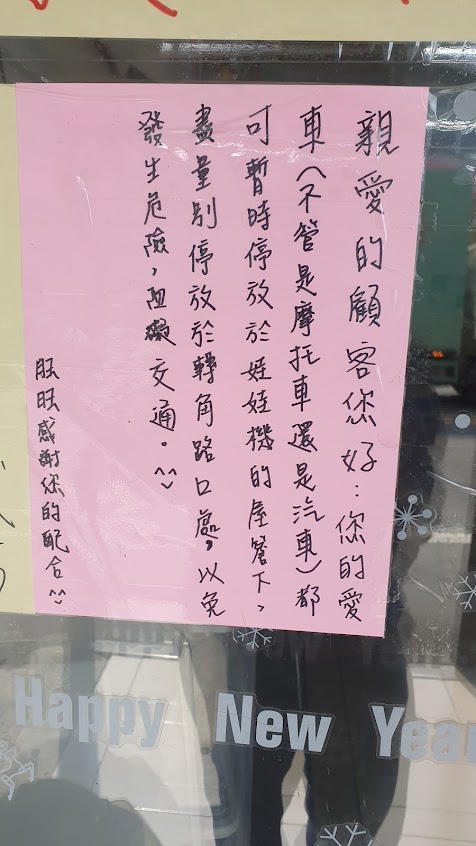 親愛的顧客您好：您的愛
車（不管是摩托車還是汽車）都
可暫時停放於娃娃機的屋簷下，
盡量別停放於轉角路口處，以免
發生危險，阻礙交通。^^
旺旺感謝你的配合^^
Happy New Year